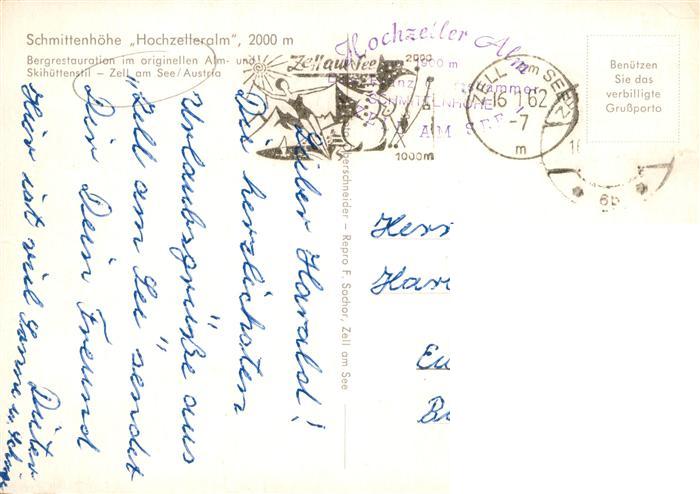 Schmittenhöhe „Hochzelleralm", 2000 m
Bergrestauration im originellen Alm- und
Skihüttenstil – Zell am See/Austria
Zell am See
2000
1000 m
Hochzeller Alm
SCHMITTENHÖHE
AM SEE
ZELL am SEE
16.1.62
-7
m
6b
Benützen
Sie das
verbilligte
Grußporto
Lieber Harald!
Die herzlichsten
Urlaubsgrüße aus
„Zell am See" sendet
Dir Dein Freund
Dieter
Hier ist viel Sonne u.
gerschneider – Repro F. Sochor, Zell am See
Herr
Har
Eu